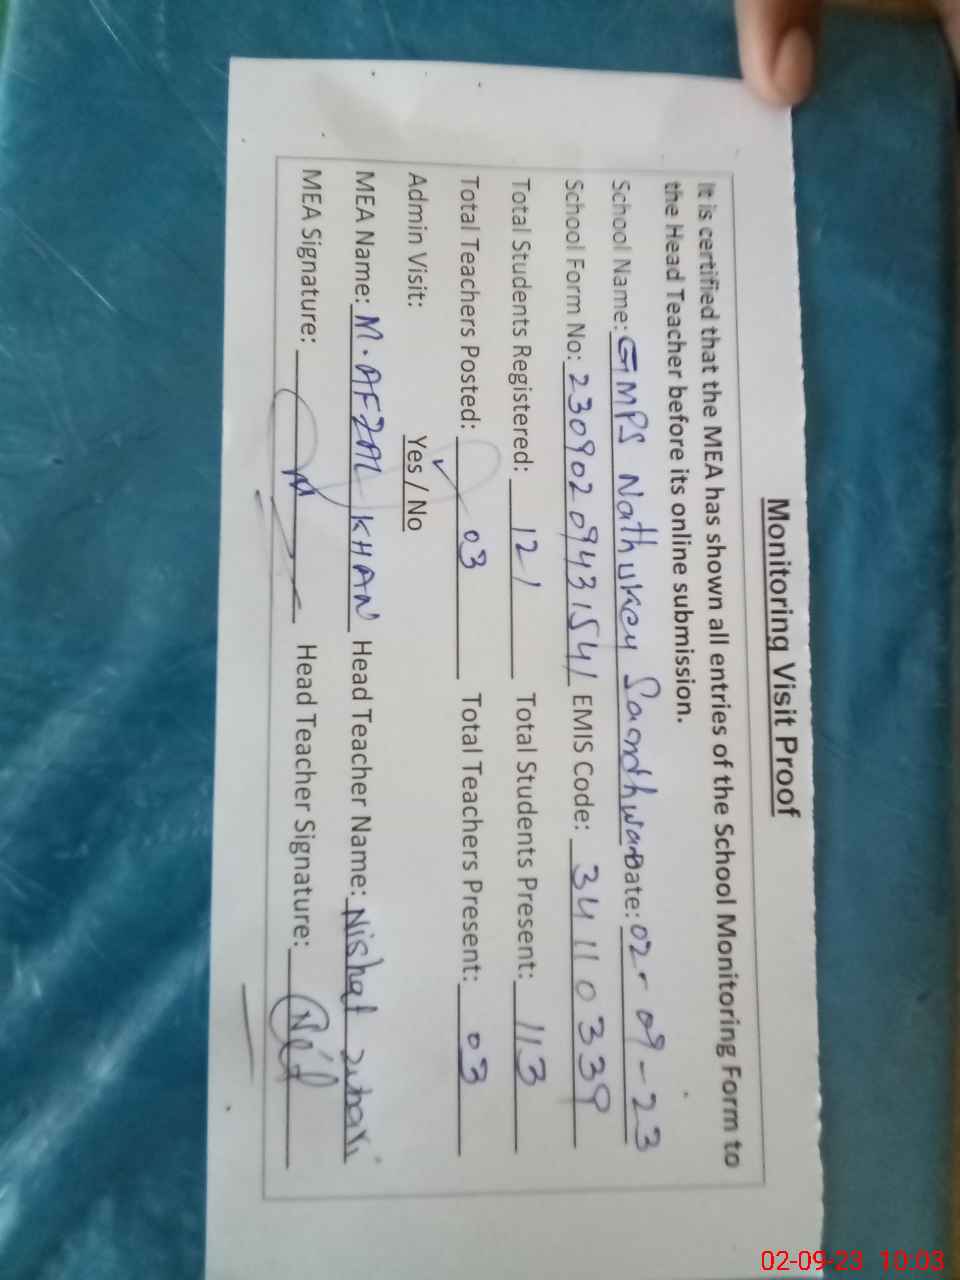 Monitoring Visit Proof
It is certified that the MEA has shown all entries of the School Monitoring Form to
the Head Teacher before its online submission.
School Name: GMPS Nathukey Date: 02-09-23
School Form No: 23090209431541 EMIS Code: 34110339
Total Students Registered: 121 Total Students Present: 113
Total Teachers Posted: 03 Total Teachers Present: 03
Admin Visit: Yes / No
MEA Name: M.AFZAL KHAN Head Teacher Name: Nishat
MEA Signature: Head Teacher Signature:
02-09-23 10:03